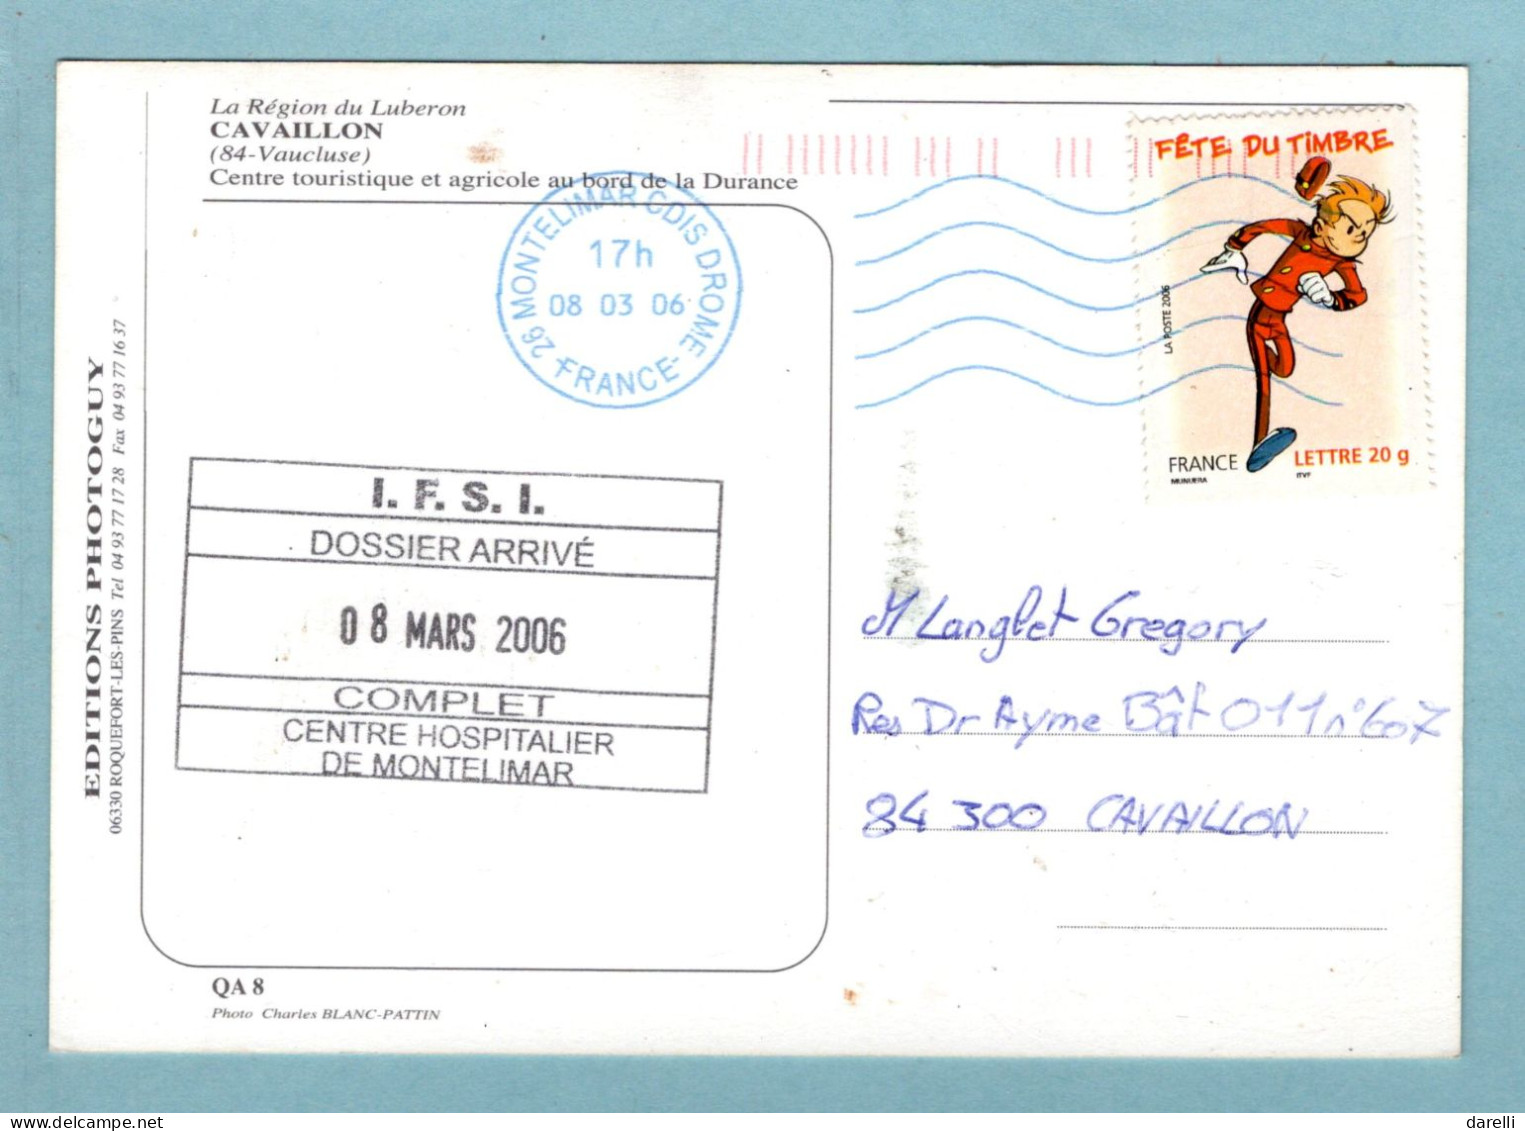 La Région du Luberon
CAVAILLON
(84-Vaucluse)
Centre touristique et agricole au bord de la Durance
26 MONTELIMAR CDIS DROME
17h
08 03 06
-FRANCE-
FÊTE DU TIMBRE
LA POSTE 2006
FRANCE LETTRE 20 g
MUNUERA ITVF
EDITIONS PHOTOGUY
06330 ROQUEFORT-LES-PINS Tel 04 93 77 17 28 Fax 04 93 77 16 37
I. F. S. I.
DOSSIER ARRIVÉ
08 MARS 2006
COMPLET
CENTRE HOSPITALIER
DE MONTELIMAR
M Langlet Gregory
Res Dr Ayme Bât 011 n°607
84 300 CAVAILLON
QA 8
Photo Charles BLANC-PATTIN
darelli